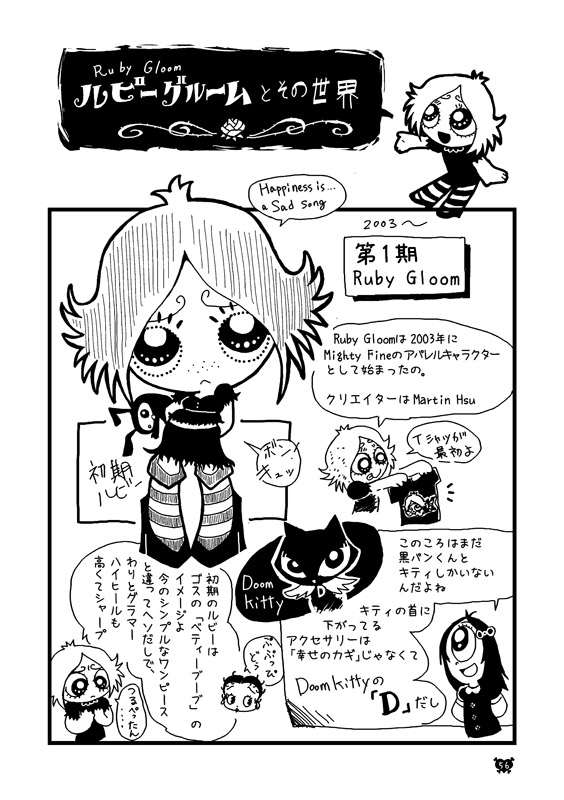 Ruby Gloom
ルビーグルームとその世界
Happiness is...
a Sad Song
2003〜
第1期
Ruby Gloom
Ruby Gloomは2003年に
Mighty Fineのアパレルキャラクター
として始まったの。
クリエイターはMartin Hsu
Tシャツが
最初よ
初期
ルビー
ボン
キュッ
Doom
Kitty
D
このころはまだ
黒パンくんと
キティしかいない
んだよね
キティの首に
下がってる
アクセサリーは
「幸せのカギ」じゃなくて
Doom Kittyの
「D」だし
初期のルビーは
ゴスの「ベティーブープ」の
イメージよ
今のシンプルなワンピース
と違ってヘソだしで、
わりとグラマー
ハイヒールも
高くてシャープ
つるぺったん
・・・・
56